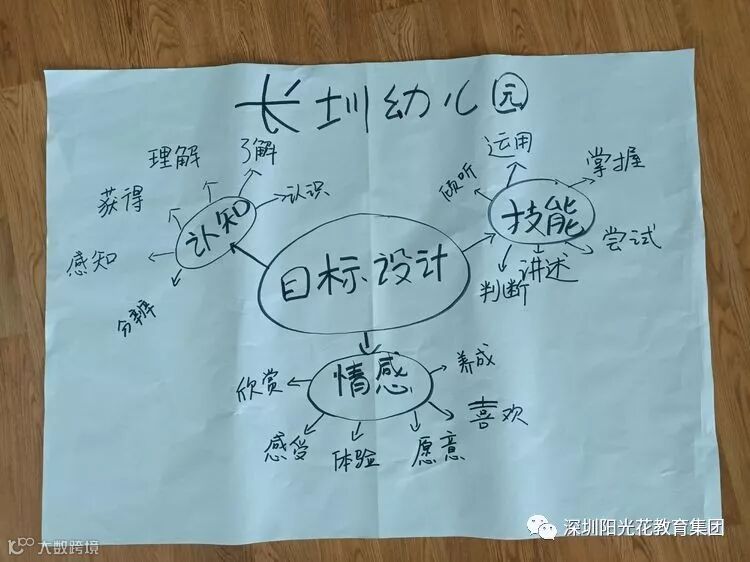 长圳幼儿园
理解
了解
获得
认识
感知
分辨
认知
运用
倾听
掌握
技能
尝试
讲述
判断
目标设计
情感
欣赏
养成
感受
体验
愿意
喜欢
深圳阳光花教育集团
大数跨境